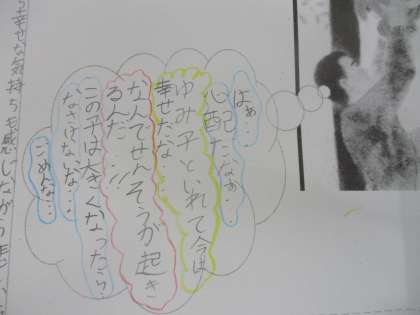 はぁ…
心配だなあ…
ゆみ子といれて今は
幸せだな…
なんでせんそうが起き
るんだ…!!
この子は大きくなったら…
なさけないな…
ごめんな…
な幸せな気持ちも感じながら